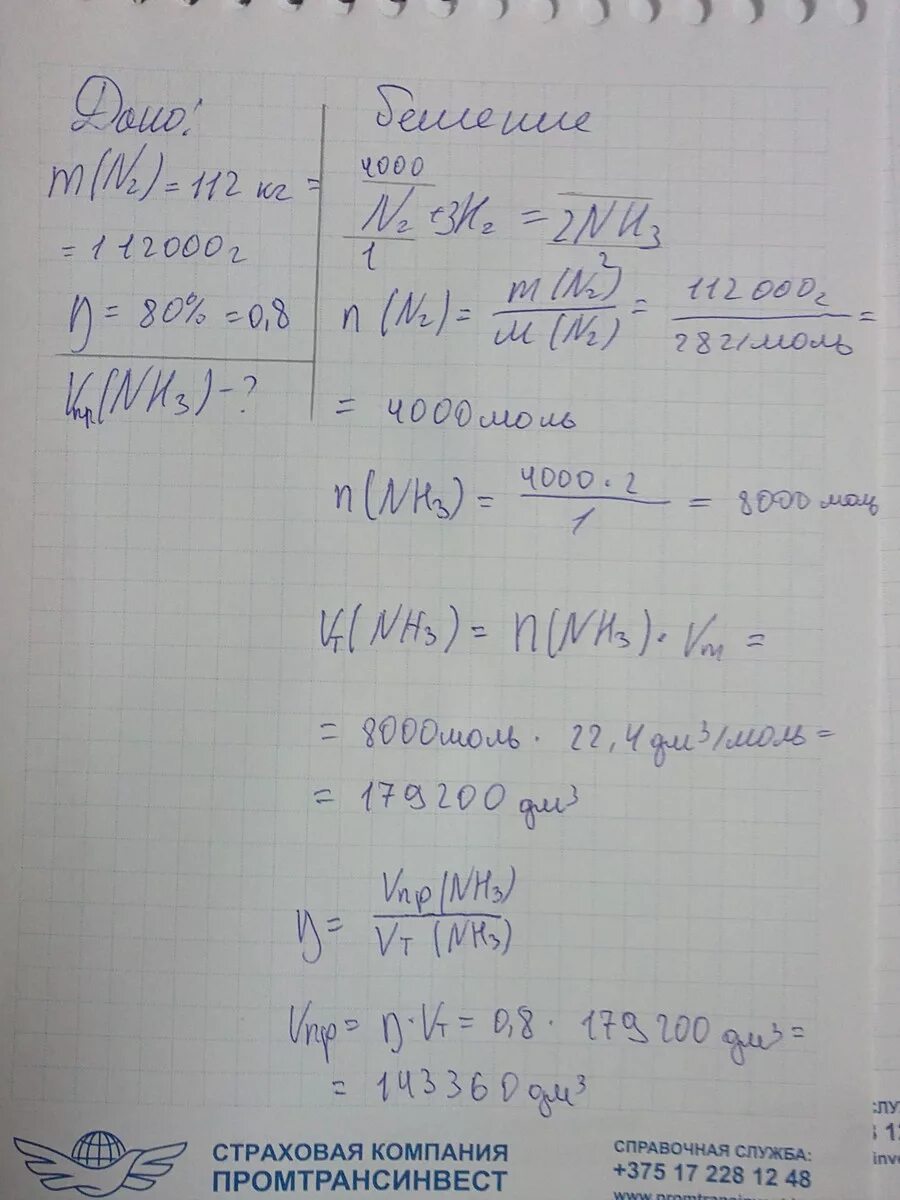 Дано:
m(N₂) = 112 кг =
= 112000г
η = 80% = 0,8
Vпр(NH₃) - ?
Решение
4000
N₂ + 3H₂ = 2NH₃
1 2
n(N₂) = m(N₂) / M(N₂) = 112000г / 28г/моль =
= 4000моль
n(NH₃) = 4000·2 / 1 = 8000 моль
Vт(NH₃) = n(NH₃)·Vm =
= 8000моль · 22,4дм³/моль =
= 179200 дм³
η = Vпр(NH₃) / Vт(NH₃)
Vпр = η·Vт = 0,8 · 179200 дм³ =
= 143360 дм³
СТРАХОВАЯ КОМПАНИЯ
ПРОМТРАНСИНВЕСТ
СПРАВОЧНАЯ СЛУЖБА:
+375 17 228 12 48